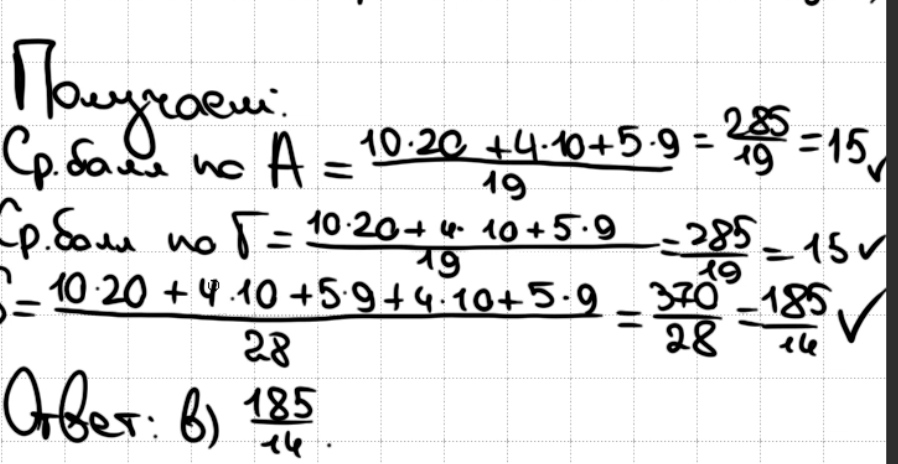 Получаем:
Ср. балл по А = 10·20 + 4·10 + 5·9 / 19 = 285/19 = 15 ✓
Ср. балл по Г = 10·20 + 4·10 + 5·9 / 19 = 285/19 = 15 ✓
= 10·20 + 4·10 + 5·9 + 4·10 + 5·9 / 28 = 370/28 = 185/14 ✓
Ответ: в) 185/14.